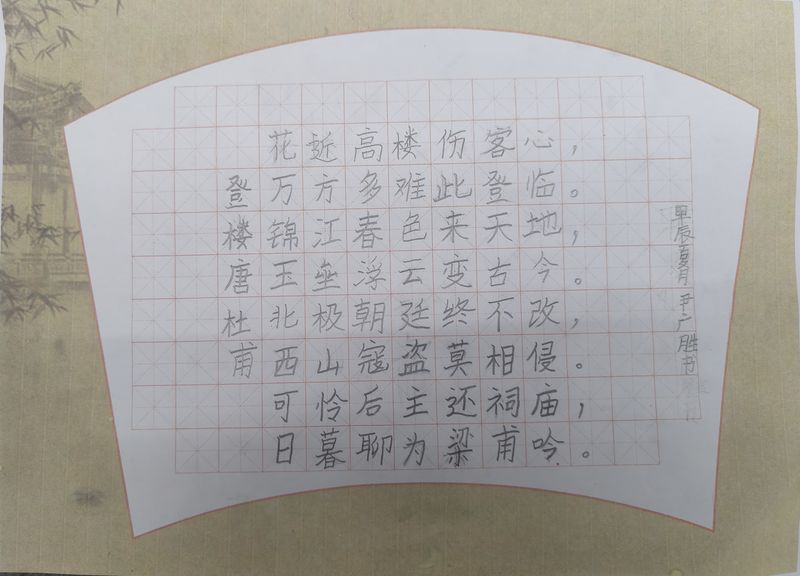 登楼唐杜甫
花近高楼伤客心，
万方多难此登临。
锦江春色来天地，
玉垒浮云变古今。
北极朝廷终不改，
西山寇盗莫相侵。
可怜后主还祠庙，
日暮聊为梁甫吟。
甲辰夏月尹广胜书